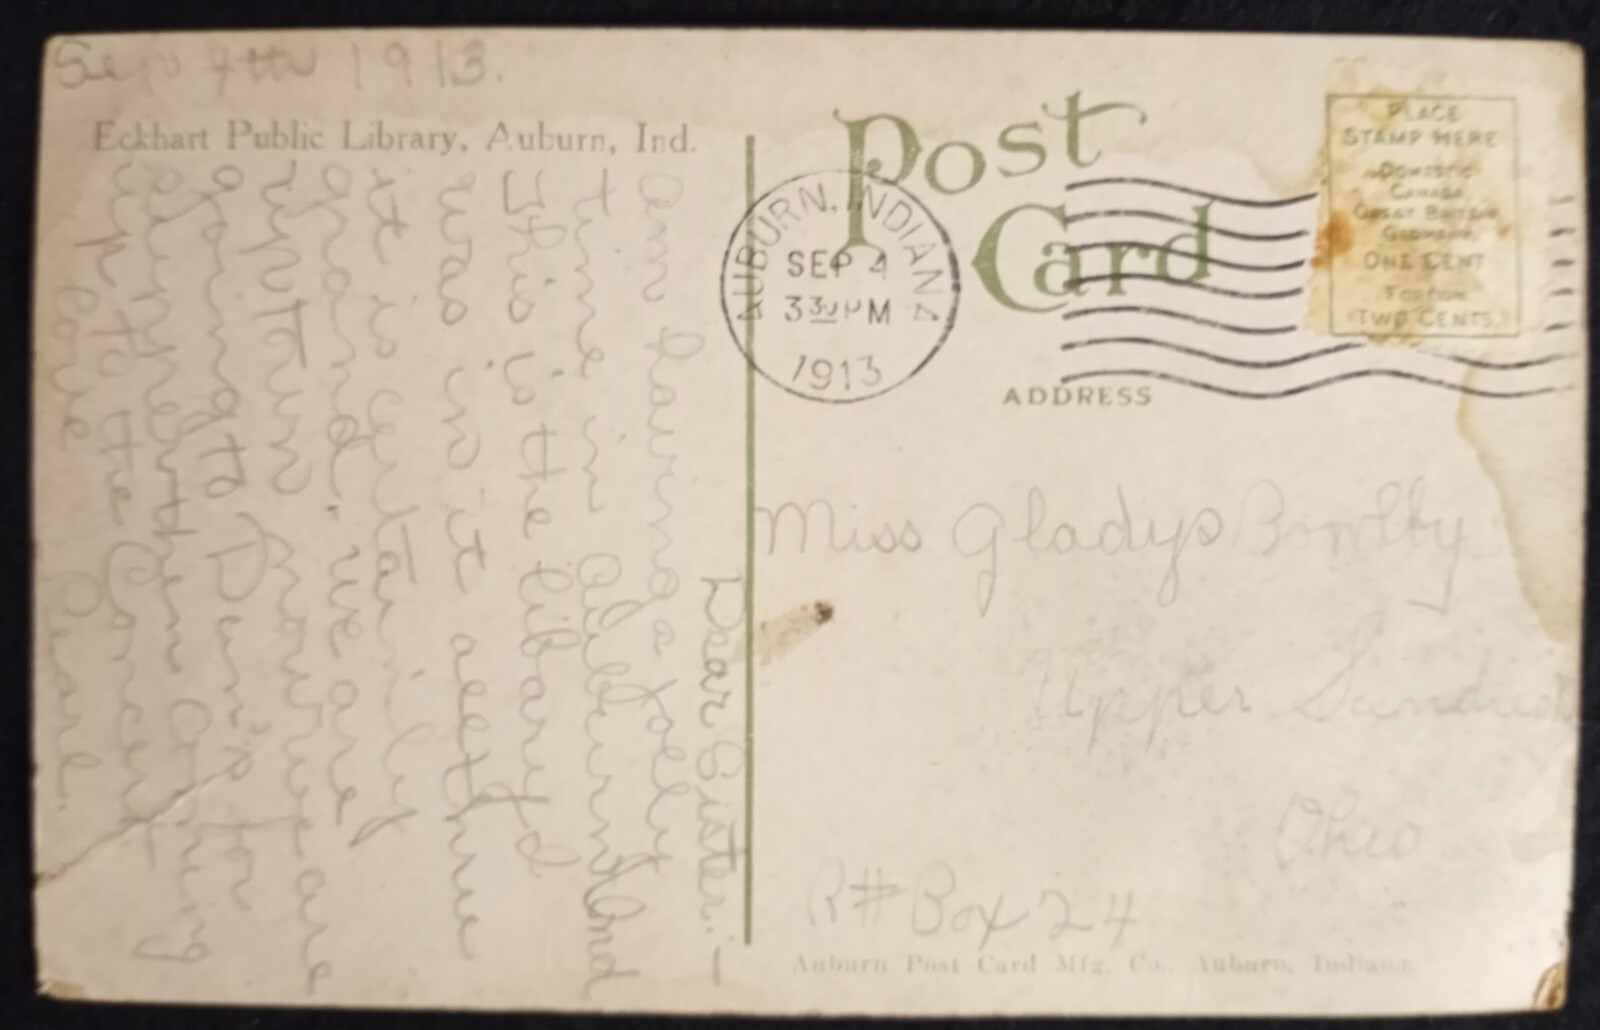 Sep 4th 1913.
Eckhart Public Library, Auburn, Ind.
Dear Sister:—
Am having a jolly
time in Auburn Ind
This is the libaryd
was in it
it is certainly
grand. we are
uptown now we are
going to for
supper then coming
up to the Concert
love Pearl.
Post
Card
AUBURN, INDIANA
SEP 4
3 30 PM
1913
PLACE
STAMP HERE
DOMESTIC
CANADA
GREAT BRITAIN
GERMANY
ONE CENT
FOREIGN
TWO CENTS
ADDRESS
Miss Gladys
Upper Sandus
Ohio
R# Box 24
Auburn Post Card Mfg. Co., Auburn, Indiana